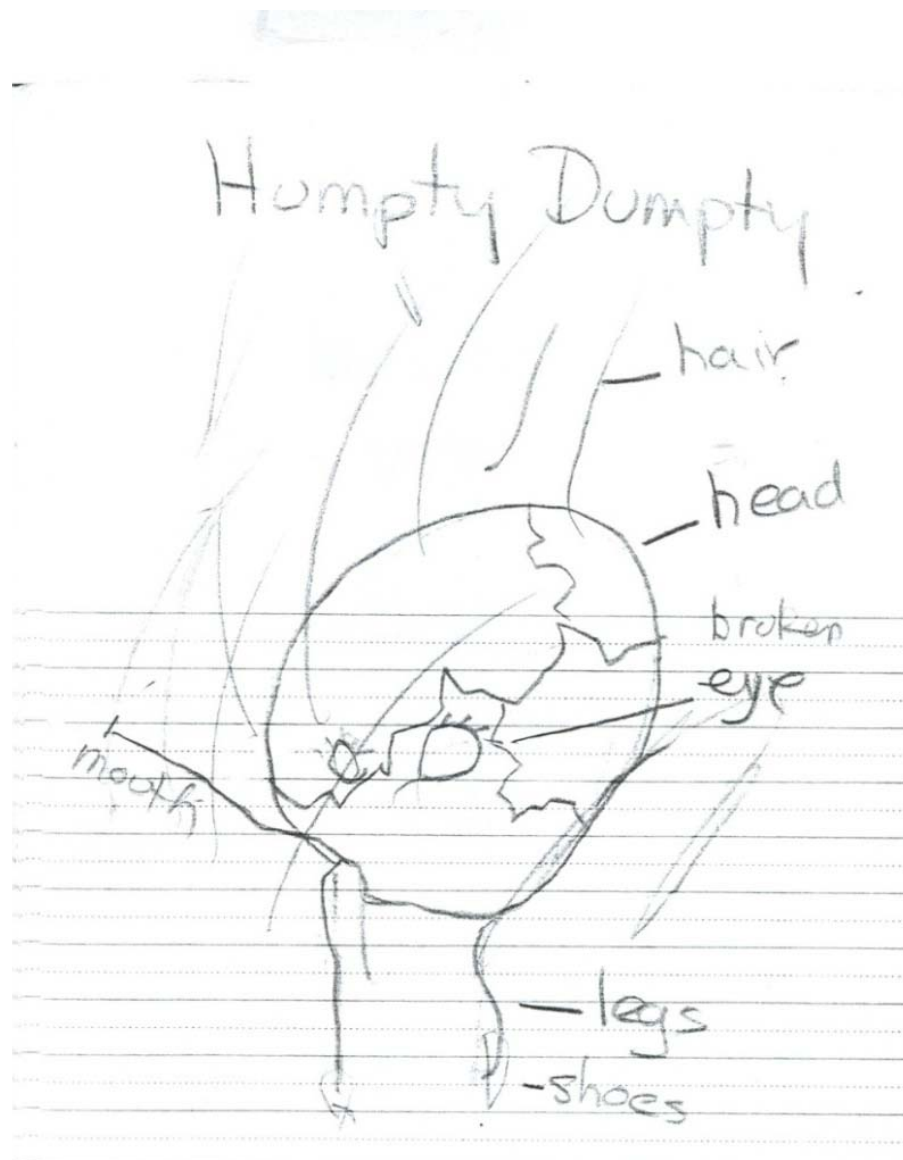 Humpty Dumpty
hair
head
broken
eye
mouth
legs
shoes